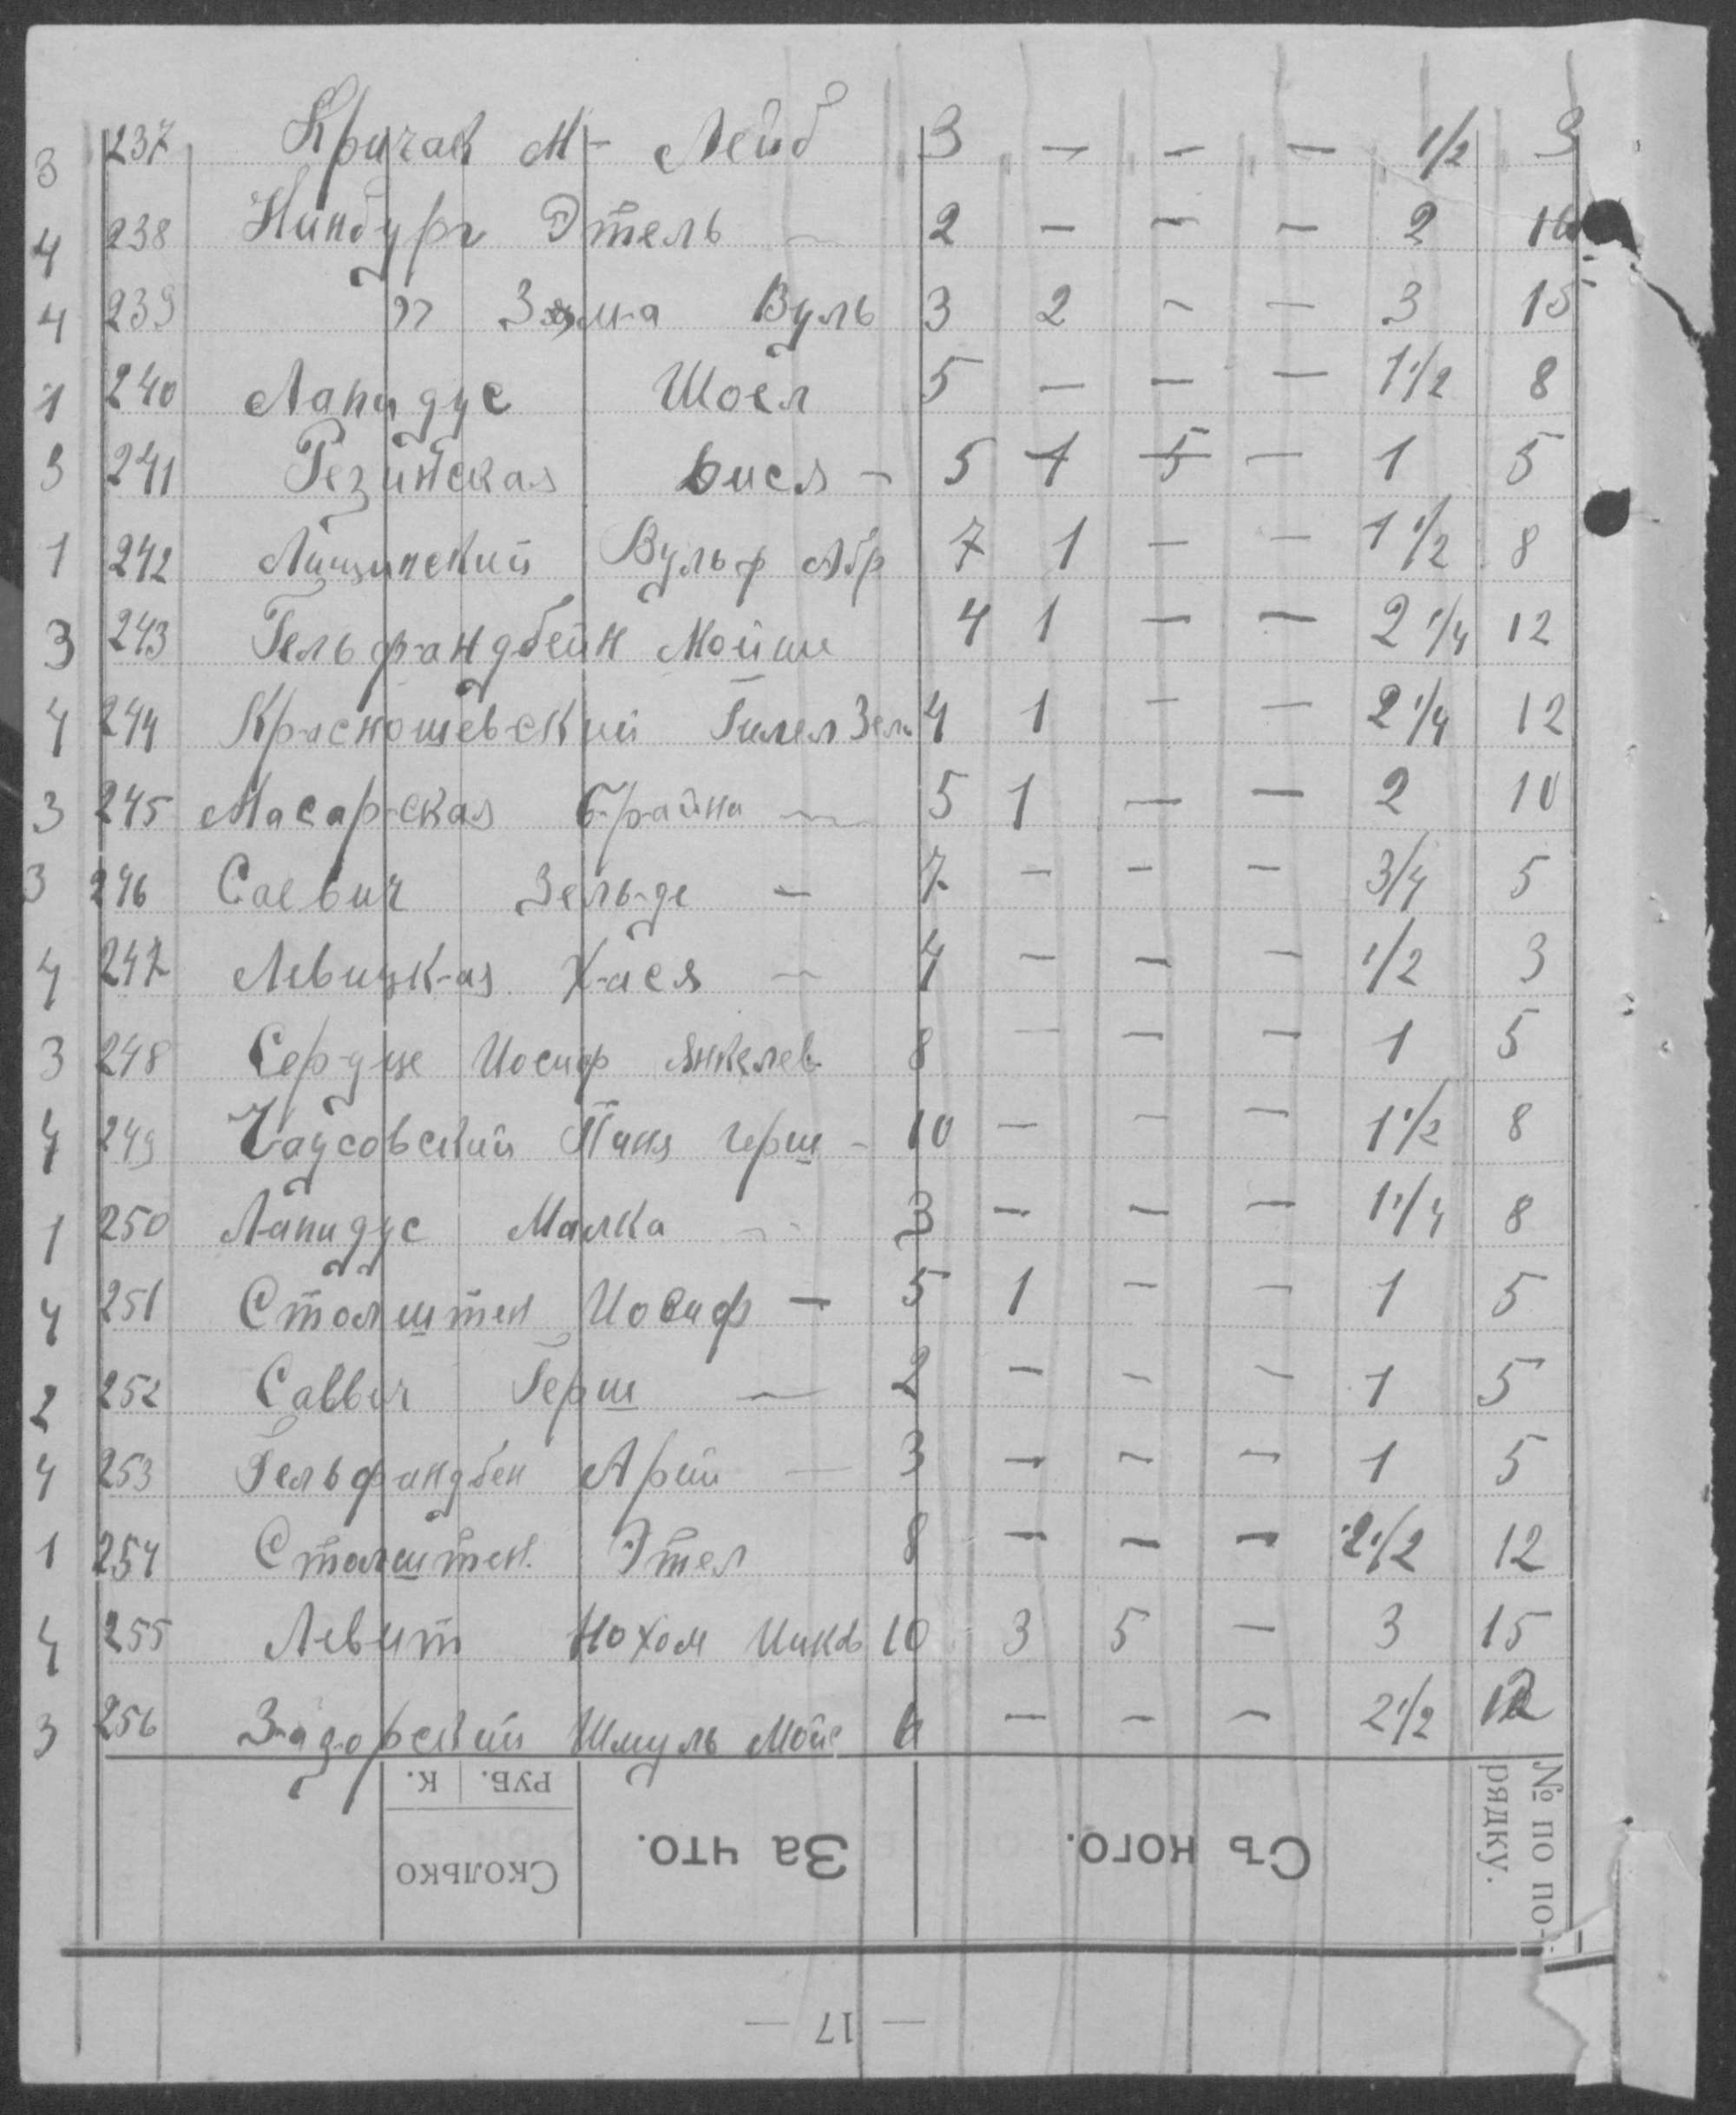 3 237 Кричак М- Лейб 3 — — — 1/2 3
4 238 Нинбург Этель — 2 — — — 2 10
4 239 " Зелма Вуль 3 2 — — 3 15
1 240 Лапидус Шоел 5 — — — 1 1/2 8
3 241 Резинская Бися — 5 1 5 — 1 5
1 242 Лищинский Вульф Абр 7 1 — — 1 1/2 8
3 243 Гельфандбейн Мойше 4 1 — — 2 1/4 12
4 244 Красношевский Гилел Зел 4 1 — — 2 1/4 12
3 245 Масарская Брайна — 5 1 — — 2 10
3 246 Саевич Зельде — 7 — — — 3/4 5
4 247 Левицкая Хася — 4 — — — 1/2 3
3 248 Сердце Иосиф Янкелев. 8 — — — 1 5
4 249 Чаусовский Пиня герш — 10 — — — 1 1/2 8
1 250 Лапидус Малка — 3 — — — 1 1/4 8
4 251 Столиштен Иосиф — 5 1 — — 1 5
2 252 Саввич Герш — 2 — — — 1 5
4 253 Гельфандбен Арий — 3 — — — 1 5
1 254 Столиштен. Этел 8 — — — 2 1/2 12
4 255 Левит Нохом Ицков 10 3 5 — 3 15
3 256 Задорский Шмуль Мойс — — — 2 1/2 12
№ по по-
рядку.
Съ кого.
За что.
Сколько
РУБ. К.
— 17 —